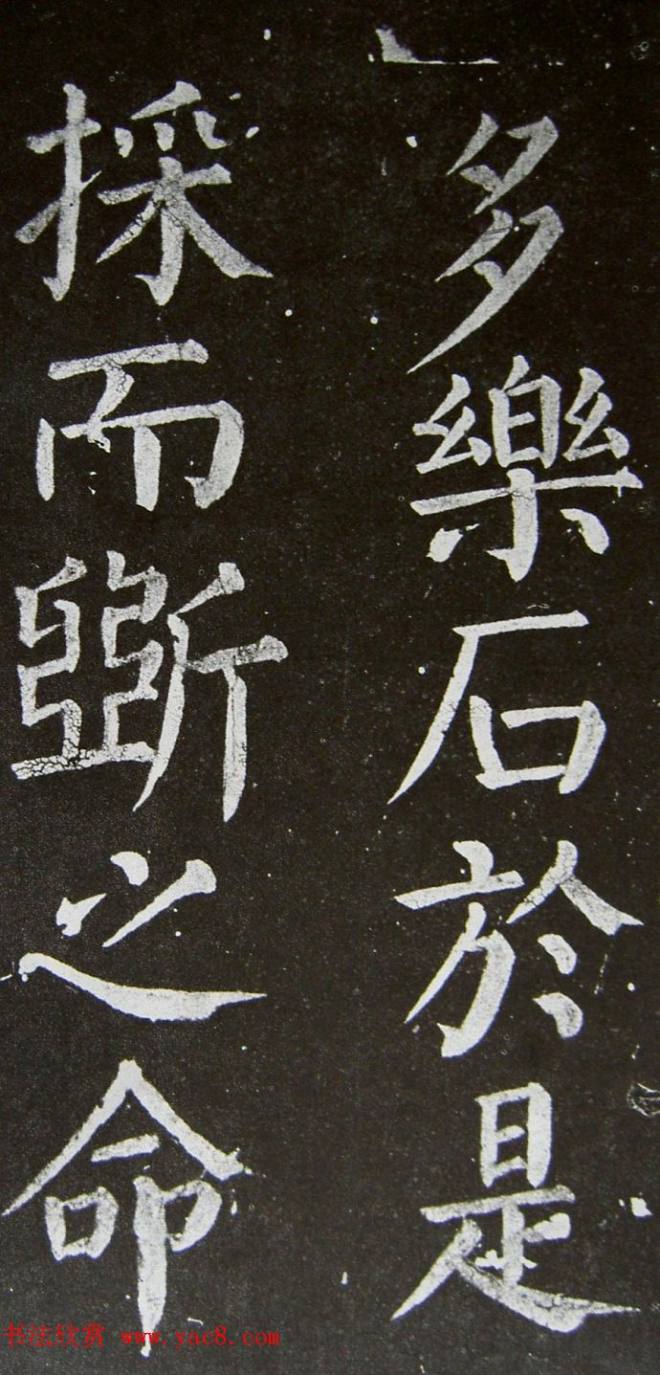 多樂石於是
採而斲之命
书法欣赏 www.yac8.com